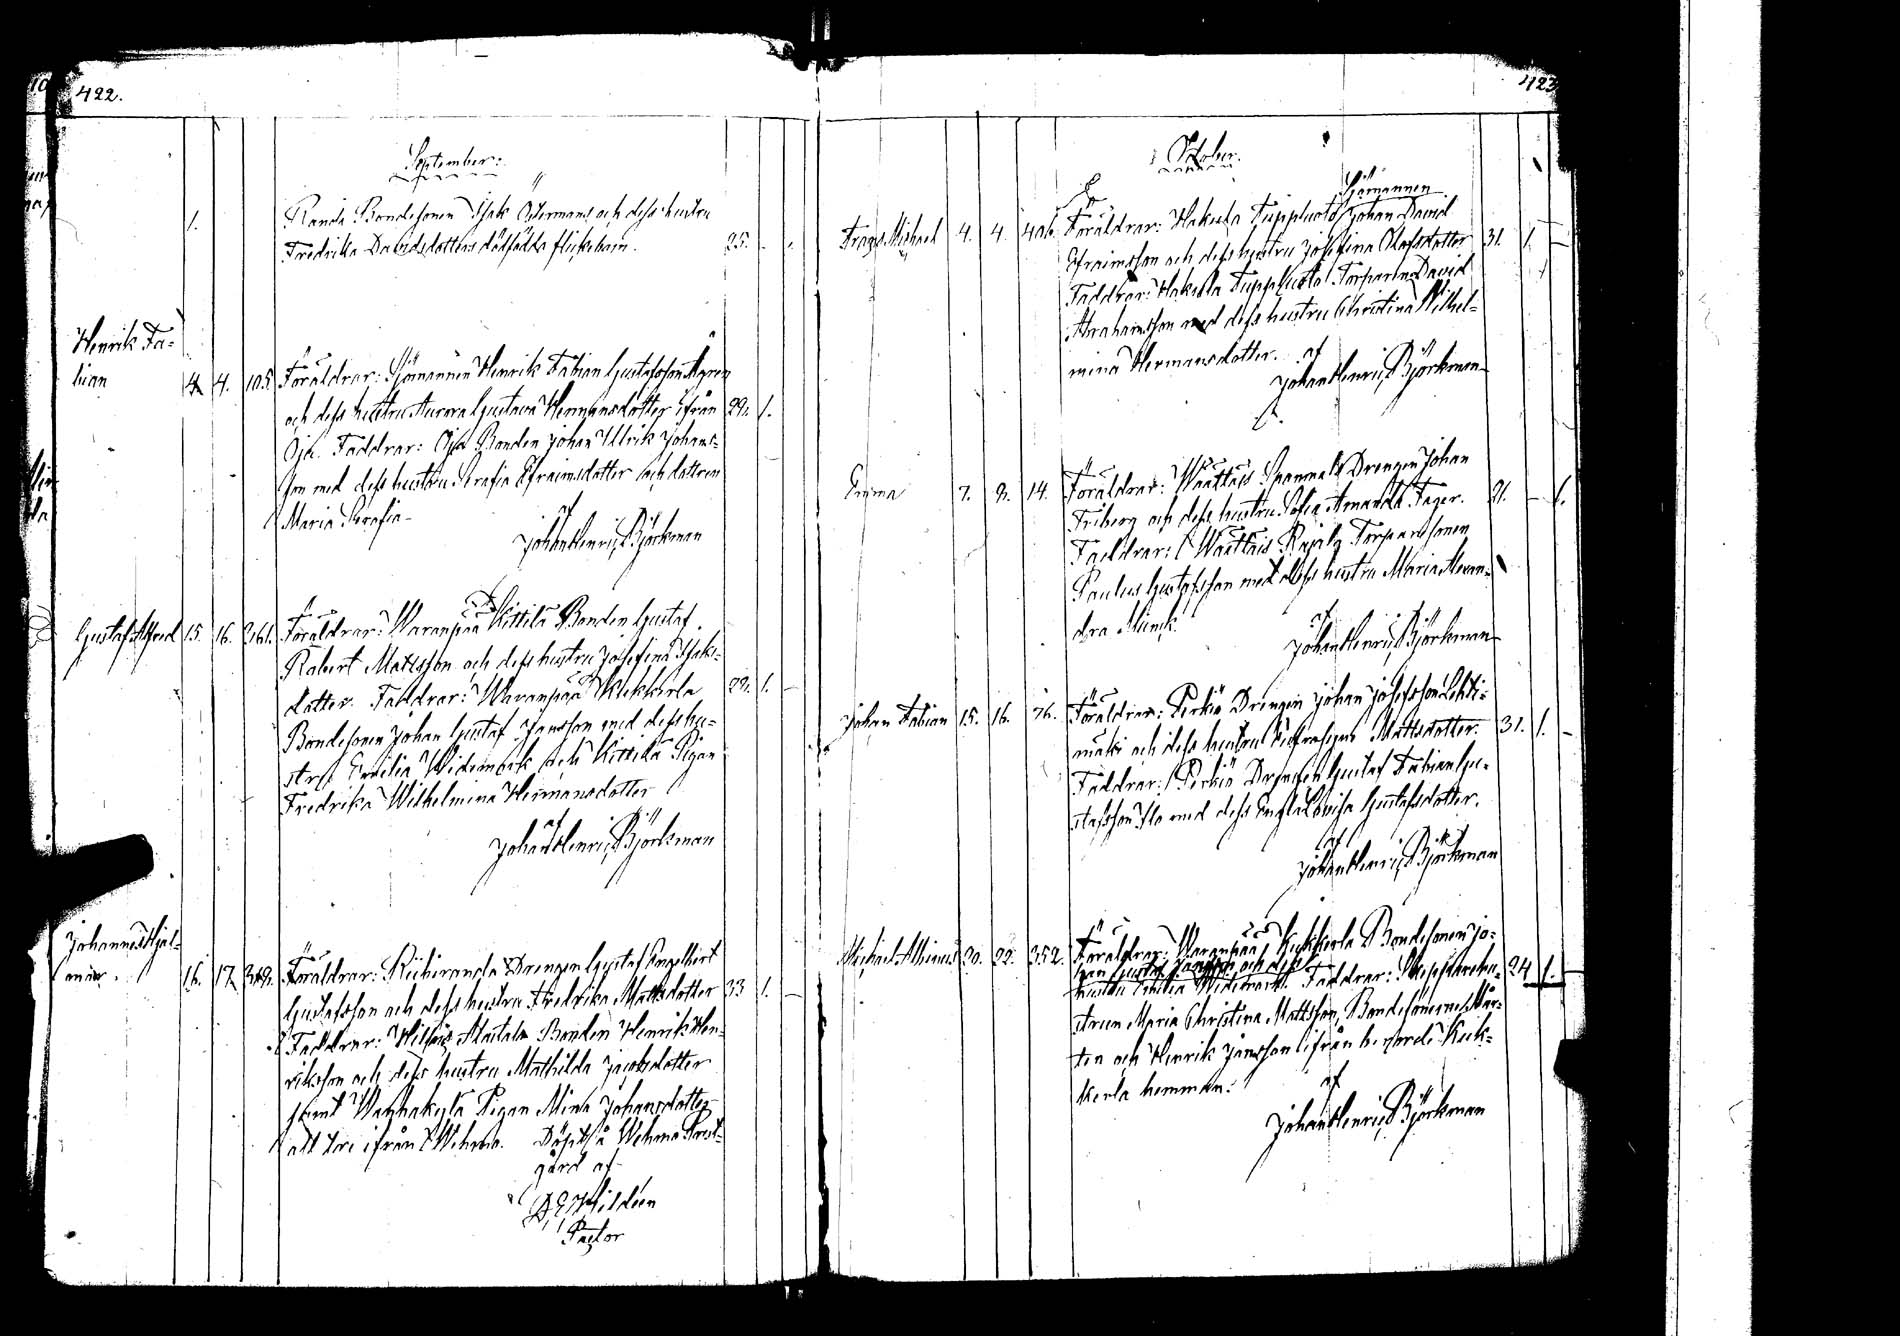 422.
September:
1. Randa Bondesonen Isak Östermans och dess hustru
Fredrika Davidsdotters dödfödda flickebarn. 25. - -
Henrik Fa-
bian 4. 4. 105. Föräldrar: Sjömannen Henrik Fabian Gustafsson Ågren
och dess hustru Aurora Gustava Hermansdotter ifrån 29. 1.
Öja. Faddrar: Öja Bonden Johan Ulrik Johans-
son med dess hustru Serafia Efraimsdotter och dottren
Maria Serafia-
af
Johan Henric Björkman
Gustaf Alfred 15. 16. 361. Föräldrar: Waranpää Kittilä Bonden Gustaf
Robert Mattsson och dess hustru Josefina Isaks-
dotter. Faddrar: Waranpää Kukkerla 29. 1. -
Bondesonen Johan Gustaf Jansson med dess hu-
stru Emilia Widemark och Kittilä Pigan
Fredrika Wilhelmina Hermansdotter
af
Johan Henric Björkman
Johannes Hjal-
mar. 16. 17. Föräldrar: Drengen Gustaf Engelbert
Gustafsson och dess hustru Fredrika Mattsdotter 33 1. -
Faddrar: Bonden Henrik Hen-
riksson och dess hustru Mathilda Jacobsdotter
samt Wanhakylä Pigan Mina Johansdotter
all tre ifrån Wehmo. Döpt på Wehmo Prest-
gård af
Pastor
423
October.
Sjömannen
Frans Michael 4. 4. Föräldrar: Hakula Tuppluoto Johan David
Efraimsson och dess hustru Josefina Olofsdotter 31. 1. -
Faddrar: Hakula Tuppluoto Torparen David
Abrahamsson med dess hustru Christina Wilhel-
mina Hermansdotter. af
Johan Henric Björkman
Emma 7. 9. 14. Föräldrar: Waattais Spannmals Drengen Johan
Friberg och dess hustru Sofia Amanda Fager. 21. - 1.
Faddrar: Waattais Rajala Torparesonen
Paulus Gustafsson med dess hustru Maria Alexan-
dra Munck. af
Johan Henric Björkman
Johan Fabian 15. 16. 76. Föräldrar: Perkiö Drengen Johan Josefsson Lehti-
mäki och dess hustru Eufrosyne Mattsdotter. 31. 1. -
Faddrar: Perkiö Drengen Gustaf Fabian Gu-
stafsson Ilo med dess Engla Lovisa Gustafsdotter.
af
Johan Henric Björkman
Michael Albinus 20. 22. 352. Föräldrar: Waranpää Kukkerla Bondesonen Jo-
han Gustaf Jansson och dess
hustru Emilia Widemark. Faddrar: Skepparehu- 24 1. -
strun Maria Christina Mattsson, Bondesönerne Mår-
ten och Henrik Jansson ifrån berörde Kuk-
kerla hemman. af
Johan Henric Björkman